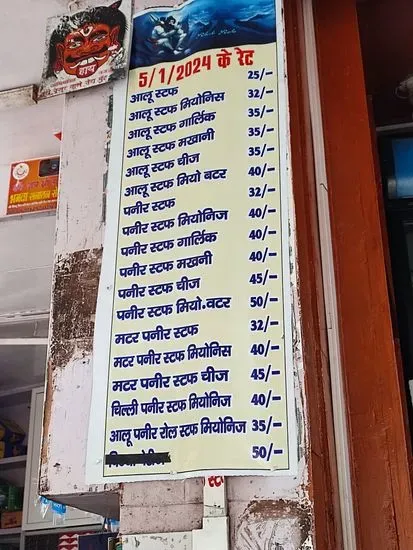 हाय
5/1/2024 के रेट
आलू स्टफ 25/-
आलू स्टफ मियोनिस 32/-
आलू स्टफ गार्लिक 35/-
आलू स्टफ मखानी 35/-
आलू स्टफ चीज 35/-
आलू स्टफ मियो बटर 40/-
पनीर स्टफ 32/-
पनीर स्टफ मियोनिज 40/-
पनीर स्टफ गार्लिक 40/-
पनीर स्टफ मखनी 40/-
पनीर स्टफ चीज 45/-
पनीर स्टफ मियो.वटर 50/-
मटर पनीर स्टफ 32/-
मटर पनीर स्टफ मियोनिस 40/-
मटर पनीर स्टफ चीज 45/-
चिल्ली पनीर स्टफ मियोनिज 40/-
आलू पनीर रोल स्टफ मियोनिज 35/-
50/-